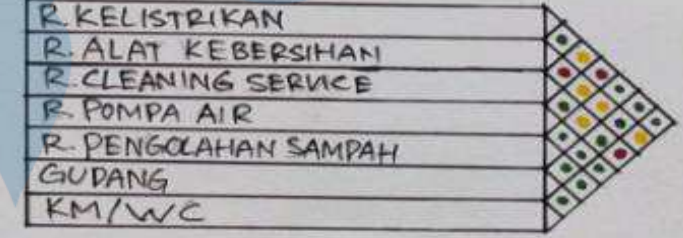 R. KELISTRIKAN
R. ALAT KEBERSIHAN
R. CLEANING SERVICE
R. POMPA AIR
R. PENGOLAHAN SAMPAH
GUDANG
KM/WC